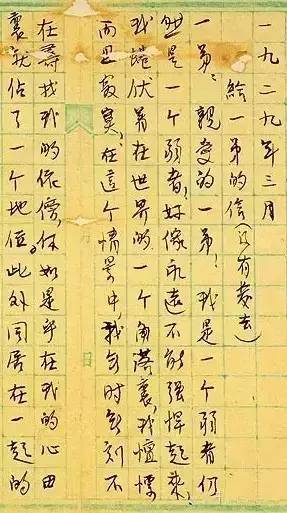 一九二九年三月
給一弟的信(没有發去)
一弟:親爱的一弟!我是一个弱者,仍
然是一个弱者;好像永遠不能强悍起来,
我蜷伏着在世界的一个角落裏,我
而且寂寞:在這个情景中,我無时無刻不
在尋找我的依傍,你如是乎在我的心田
裏就佔了一个地位。此外同居在一起的